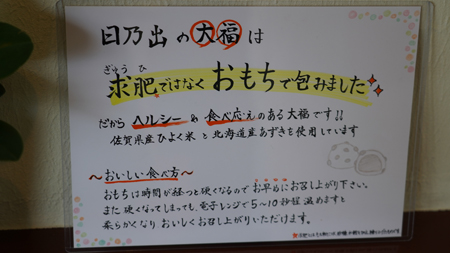 日乃出の大福は
ぎゅうひ
求肥ではなくおもちで包みました
だからヘルシー&食べ応えのある大福です!!
佐賀県産ひよく米と北海道産あずきを使用しています
～おいしい食べ方～
おもちは時間が経つと硬くなるのでお早めにお召し上がり下さい。
また硬くなってしまっても、電子レンジで5～10秒程温めますと
柔らかくなりおいしくお召し上がりいただけます。